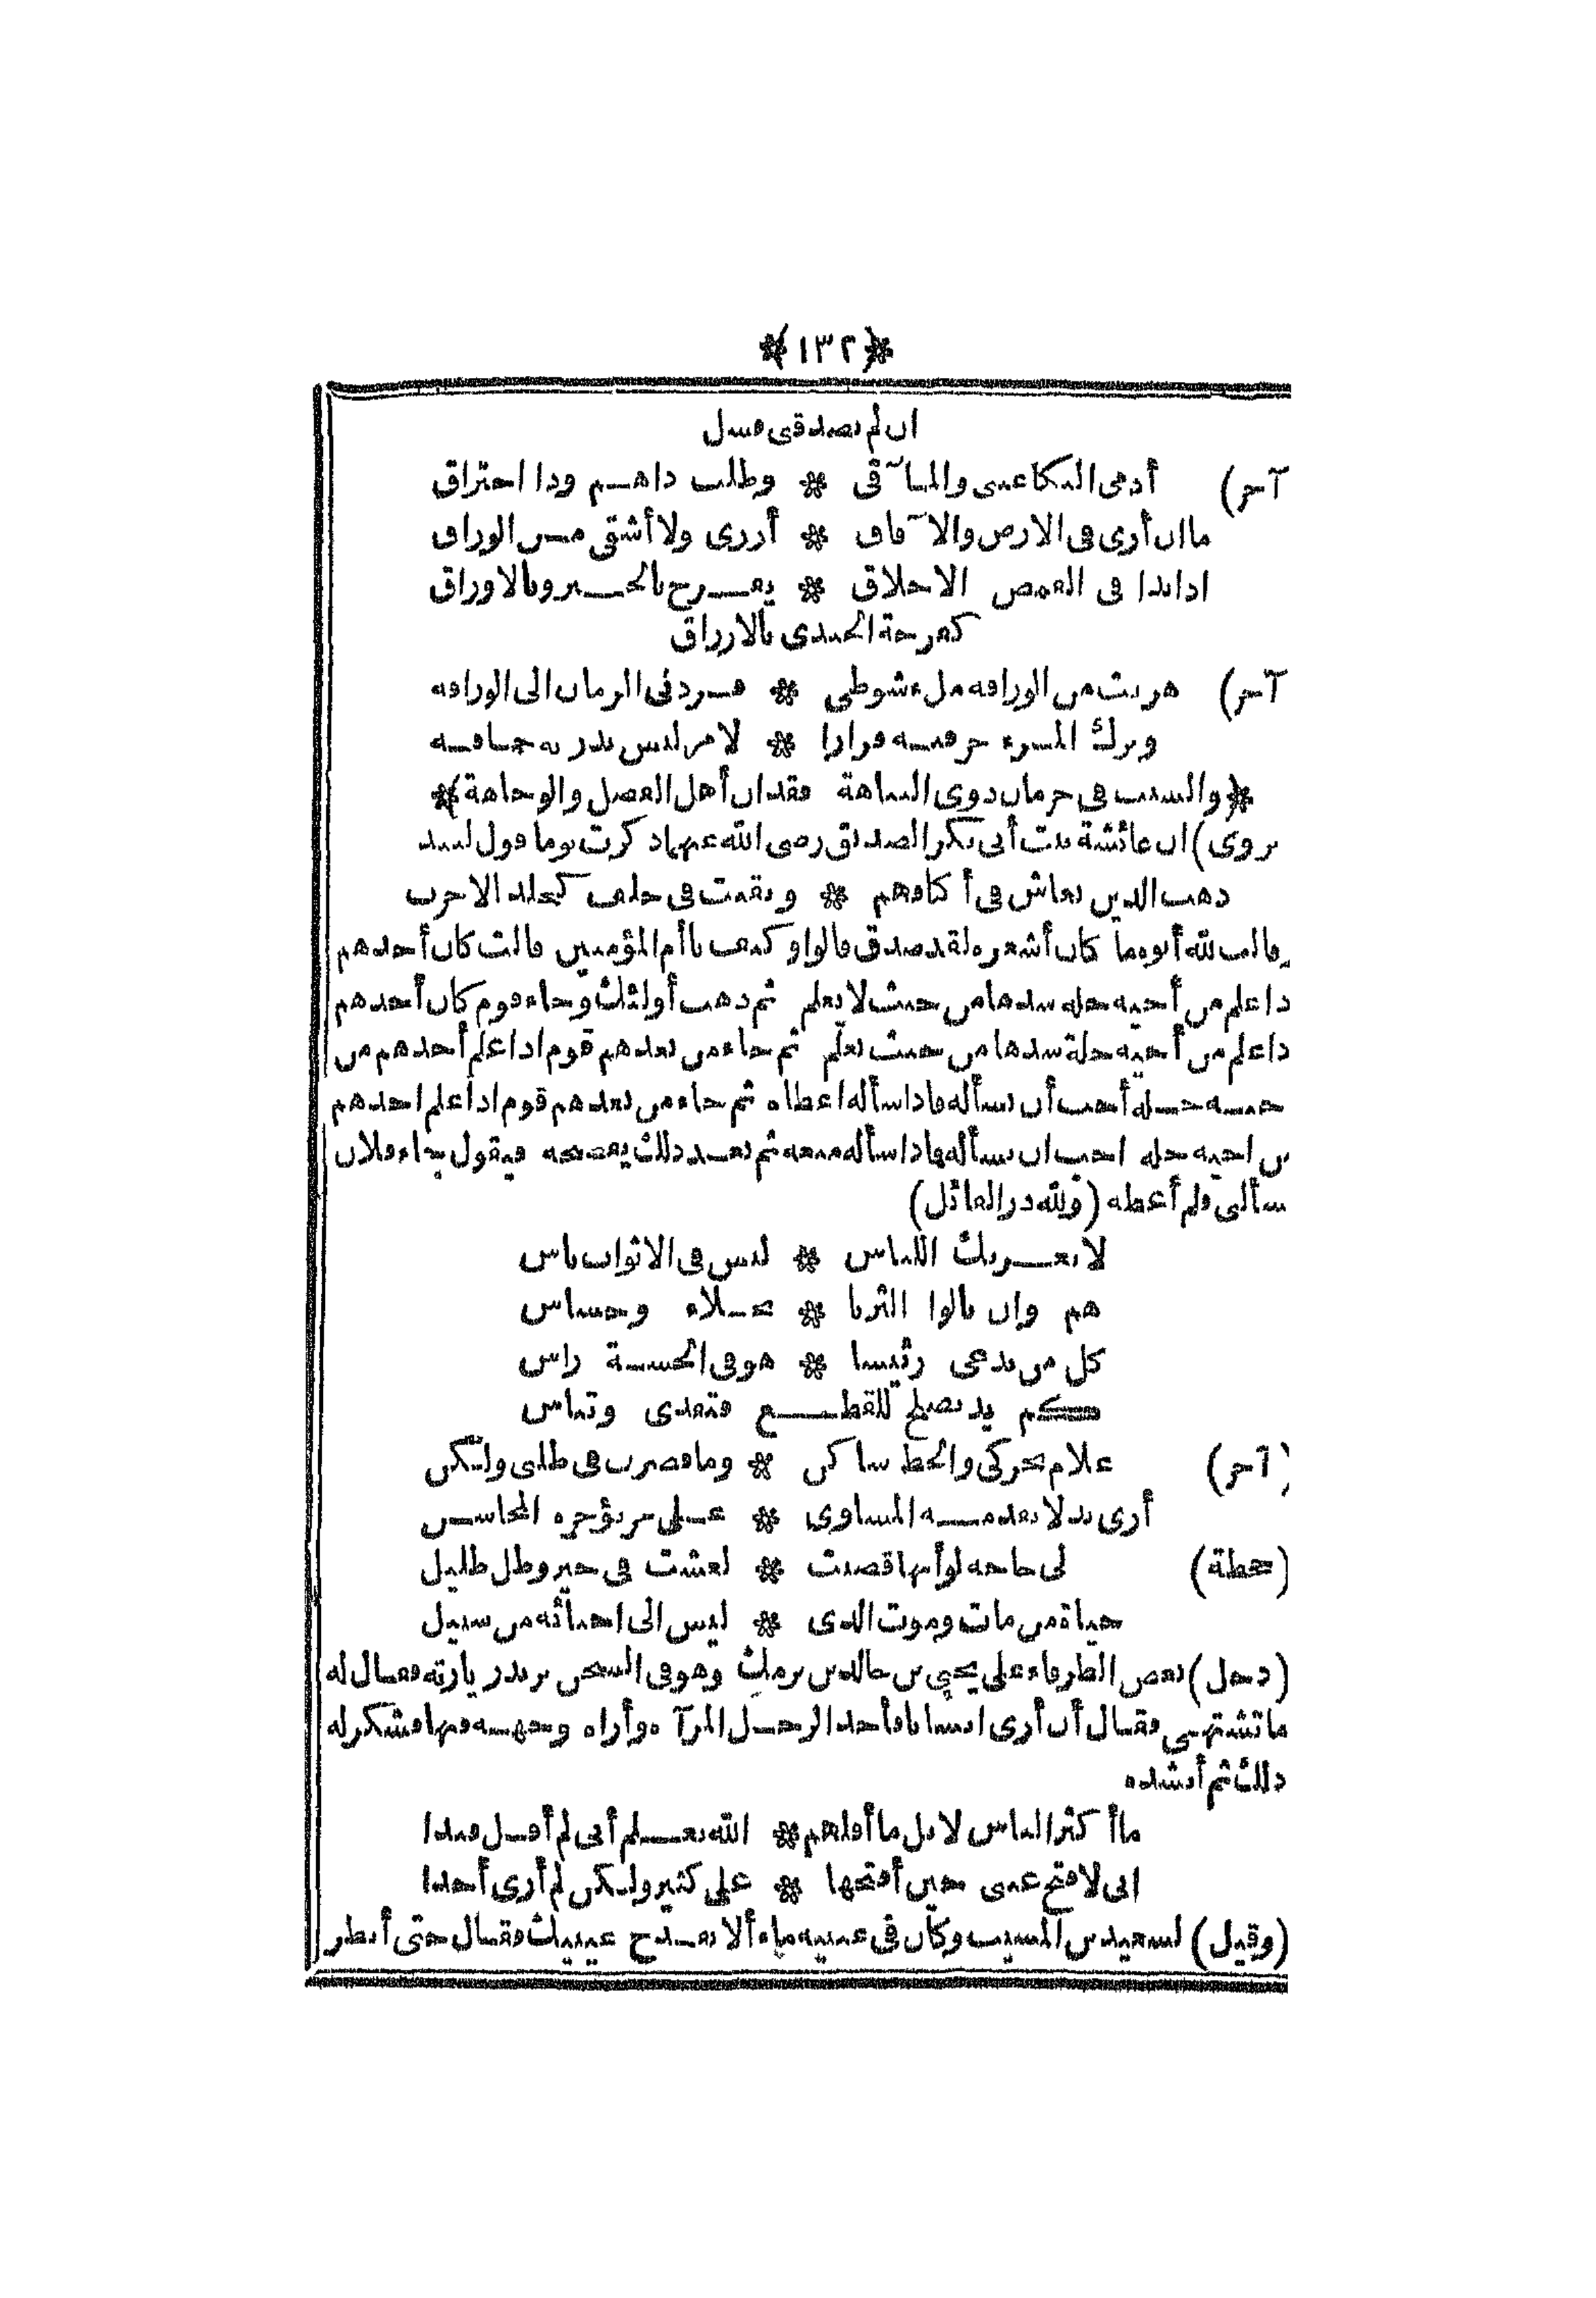 ﴿١٣٢﴾
ان لم تصدقني فسل
آخر) أدمى البكا عيني والمآقي * وظلت ذا هم وذا احتراق
ما ان أرى في الارض والآفاق * أزرى ولا أشقى من الوراق
اذا بدا في القمص الاخلاق * يفرح بالحبر وبالاوراق
كفرحة الجندي بالارزاق
آخر) هربت من الوراقه ملء شوطي * فردني الزمان الى الوراقه
وترك المرء حرفته فرارا * لامر ليس يدر به حماقه
﴿والسبب في حرمان ذوي النباهة فقدان أهل الفضل والوجاهة﴾
يروى) ان عائشة بنت أبي بكر الصديق رضي الله عنها ذكرت يوما قول لبيد
ذهب الذين يعاش في أكنافهم * وبقيت في خلف كجلد الاجرب
وقالت لله أبوه ما كان أشعره لقد صدق قالوا وكيف ياأم المؤمنين قالت كان أحدهم
ذا علم من أخيه خلة سدها من حيث لا يعلم ثم ذهب أولئك وجاء قوم كان أحدهم
ذا علم من أخيه خلة سدها من حيث يعلم ثم جاء من بعدهم قوم اذا علم أحدهم من
خيه خلة أحب أن يسأله فاذا سأله اعطاه ثم جاء من بعدهم قوم اذا علم احدهم
من اخيه خلة احب ان يسأله فاذا سأله منعه ثم بعد ذلك يفضحه فيقول جاء فلان
سألني ولم أعطه (ولله در القائل)
لا يغرنك اللباس * ليس في الاثواب ناس
هم وان نالوا الثريا * بخلاء وخساس
كل من يدعى رئيسا * هو في الخسة راس
كم يد تصلح للقطع فتفدى وتباس
(آخر) علام تحركي والحظ ساكن * وما قصرت في طلبي ولكن
أرى نذلا تقدمه المساوى * على حر تؤخره المحاسن
(جحظة) لي حاجه لو أنها قضيت * لعشت في خير وظل ظليل
حياة من مات وموت الذي * ليس الى احيائه من سبيل
(دخل) بعض الظرفاء على يحيى بن خالد بن برمك وهو في السجن يريد زيارته فقال له
ما تشتهي فقال أن أرى انسانا فأخذ الرجل المرآة وأراه وجهه فيها فشكر له
ذلك ثم أنشده
ما أكثر الناس لا بل ما أقلهم * الله يعلم أني لم أقل فندا
اني لافتح عيني حين أفتحها * على كثير ولكن لم أرى أحدا
(وقيل) لسعيد بن المسيب وكان في عينيه ماء ألا تقدح عينيك فقال حتى أنظر